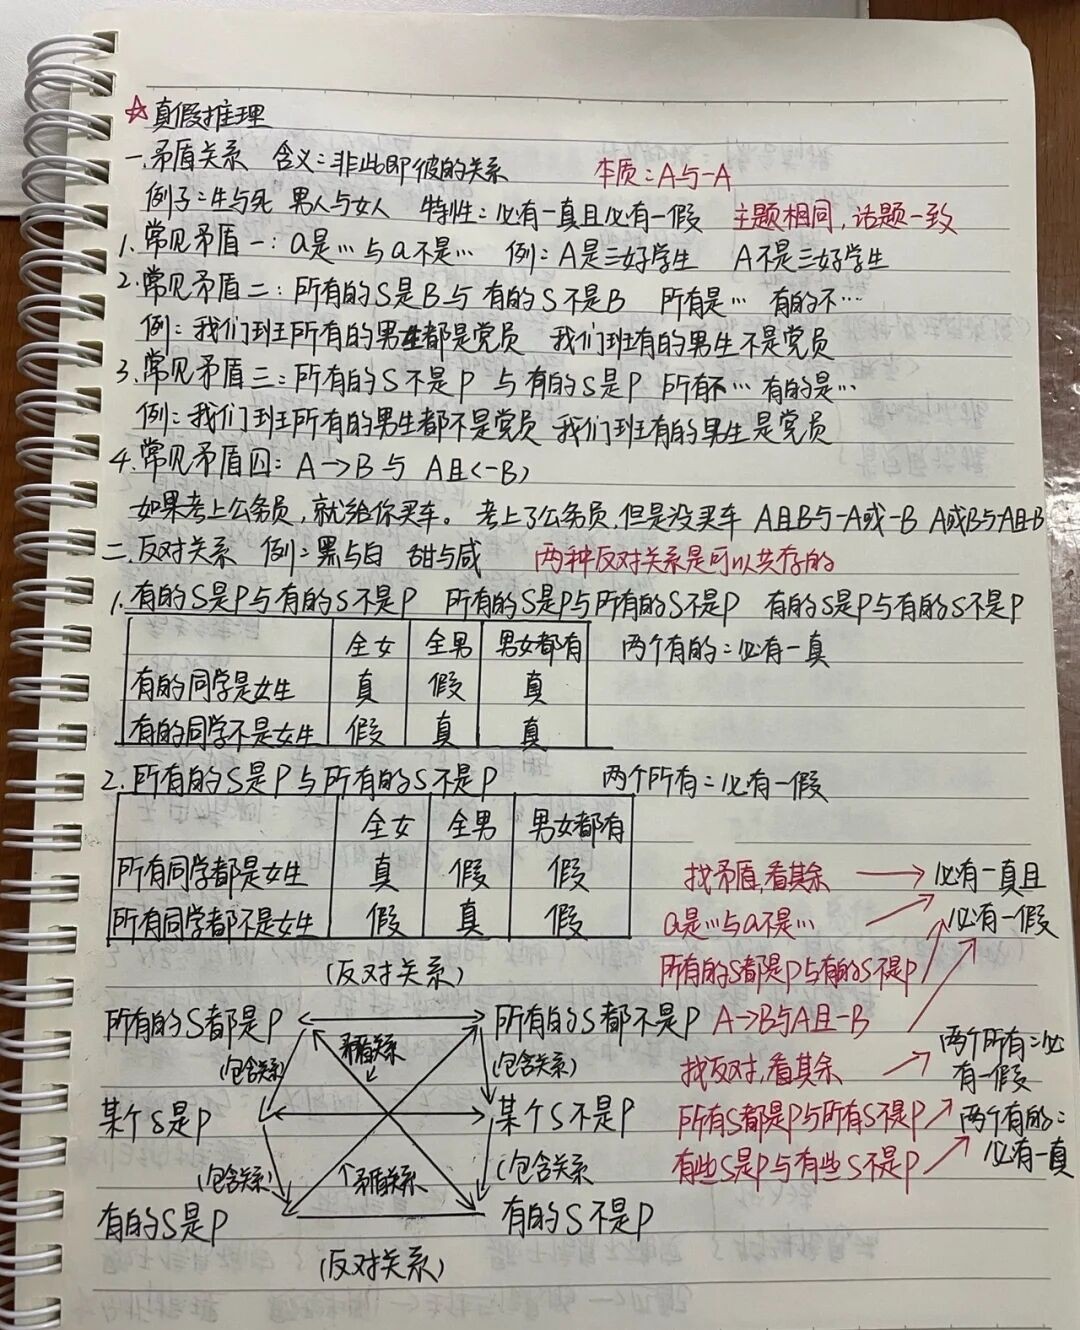 ☆真假推理
一.矛盾关系 含义:非此即彼的关系 本质:A与-A
例子:生与死 男人与女人 特性:必有一真且必有一假 主题相同,话题一致
1.常见矛盾一:a是…与a不是… 例:A是三好学生 A不是三好学生
2.常见矛盾二:所有的S是B与有的S不是B 所有是… 有的不…
例:我们班所有的男生都是党员 我们班有的男生不是党员
3.常见矛盾三:所有的S不是P 与有的S是P 所有不… 有的是…
例:我们班所有的男生都不是党员 我们班有的男生是党员
4.常见矛盾四:A→B与 A且<-B>
如果考上公务员,就给你买车。 考上了公务员,但是没买车 A且B与-A或-B A或B与-A且-B
二.反对关系 例:黑与白 甜与咸 两种反对关系是可以共存的
1.有的S是P与有的S不是P 所有的S是P与所有的S不是P 有的S是P与有的S不是P
全女 全男 男女都有 两个有的:必有一真
有的同学是女生 真 假 真
有的同学不是女生 假 真 真
2.所有的S是P与所有的S不是P 两个所有:必有一假
全女 全男 男女都有
所有同学都是女生 真 假 假
所有同学都不是女生 假 真 假
找矛盾,看其余 → 必有一真且
a是…与a不是… 必有一假
所有的S都是P与有的S不是P
A→B与A且-B
找反对,看其余 两个所有:必
有一假
所有S都是P与所有S不是P 两个有的:
有些S是P与有些S不是P 必有一真
(反对关系)
所有的S都是P 所有的S都不是P
矛盾关系
(包含关系) (包含关系)
某个S是P 某个S不是P
(包含关系) 矛盾关系 (包含关系
有的S是P 有的S不是P
(反对关系)